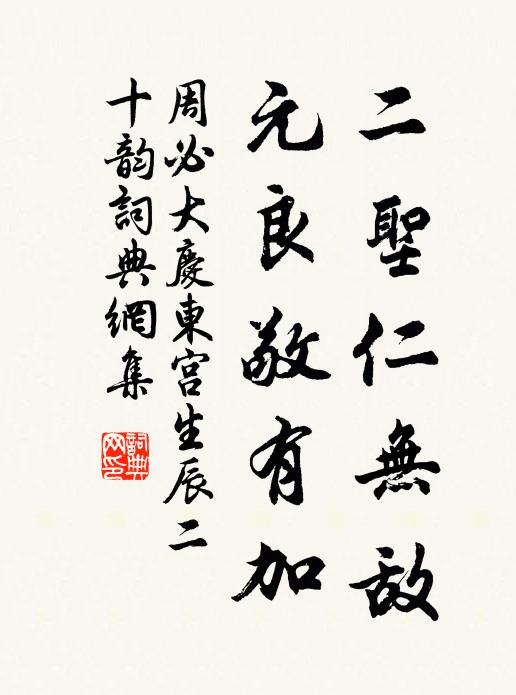 二聖仁無敵
元良敬有加
周必大慶東宮生辰二
十韵詞典網集
詞典
网印